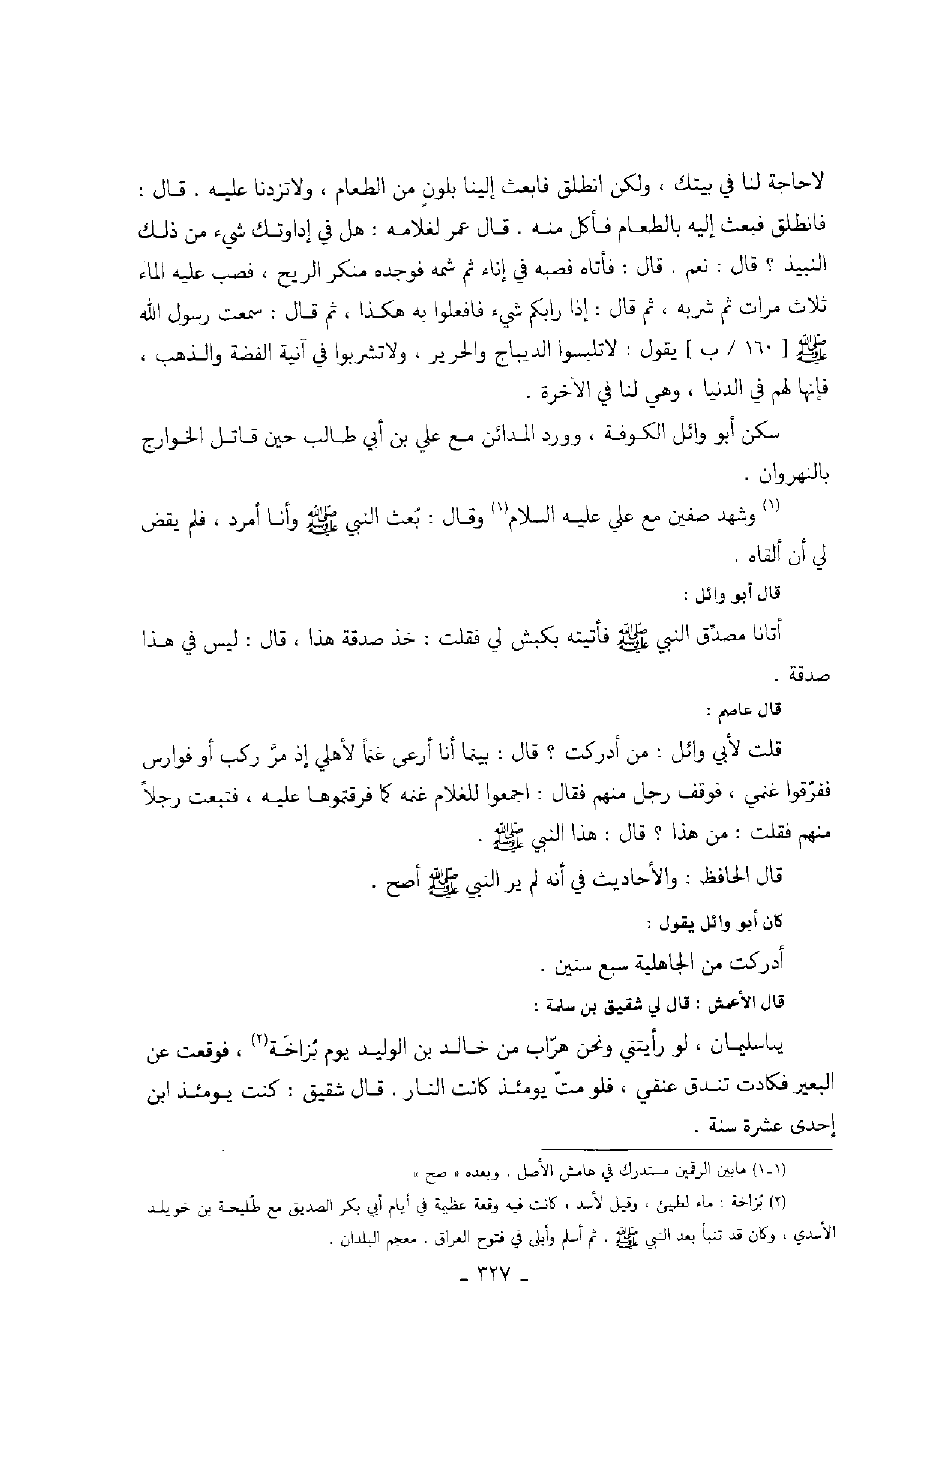 لاحاجة لنا في بيتك ، ولكن انطلق فابعث إلينا بلونٍ من الطعام ، ولاتزدنا عليـه . قـال :
فانطلق فبعث إليه بالطعـام فـأكل منـه . قـال عمر لغلامـه : هل في إداوتـك شيء من ذلـك
النبيذ ؟ قال : نعم . قال : فأتاه فصبه في إناء ثم شمه فوجده منكر الريح ، فصب عليه الماء
ثلاث مرات ثم شربه ، ثم قال : إذا رابكم شيء فافعلوا به هكـذا ، ثم قـال : سمعت رسول الله
ﷺ [ ١٦٠ / ب ] يقول : لاتلبسوا الديباج والحرير ، ولاتشربوا في آنية الفضة والـذهب ،
فإنها لهم في الدنيا ، وهي لنا في الآخرة .
سكن أبو وائل الكـوفـة ، وورد المـدائن مـع علي بن أبي طـالب حين قـاتـل الخـوارج
بالنهروان .
(١) وشهد صفين مع علي عليـه السـلام(١) وقـال : بُعث النبي ﷺ وأنـا أمرد ، فلم يقض
لي أن ألقاه .
قال أبو وائل :
أتانا مصدّق النبي ﷺ فأتيته بكبش لي فقلت : خذ صدقة هذا ، قال : ليس في هـذا
صدقة .
قال عاصم :
قلت لأبي وائل : من أدركت ؟ قال : بينما أنا أرعى غنماً لأهلي إذ مرَّ ركب أو فوارس
ففرّقوا غنمي ، فوقف رجل منهم فقال : اجمعوا للغلام غنمه كما فرقتموهـا عليـه ، فتبعت رجلاً
منهم فقلت : من هذا ؟ قال : هذا النبي ﷺ .
قال الحافظ : والأحاديث في أنه لم ير النبي ﷺ أصح .
كان أبو وائل يقول :
أدركت من الجاهلية سبع سنين .
قال الأعمش : قال لي شقيق بن سلمة :
يـاسليمـان ، لو رأيتني ونحن هرّاب من خـالـد بن الوليـد يوم بُزاخَـة(٢) ، فوقعت عن
البعير فكادت تنـدق عنقي ، فلو متّ يومئـذ كانت النـار . قـال شقيق : كنت يـومئـذ ابن
إحدى عشرة سنة .
(١-١) مابين الرقمين مستدرك في هامش الأصل . وبعده « صح »
(٢) بُزاخة : ماء لطيئ ، وقيل لأسد ، كانت فيه وقعة عظيمة في أيام أبي بكر الصديق مع طُليحة بن خويلـد
الأسدي ، وكان قد تنبأ بعد النبي ﷺ . ثم أسلم وأبلى في فتوح العراق . معجم البلدان .
ـ ٣٢٧ ـ